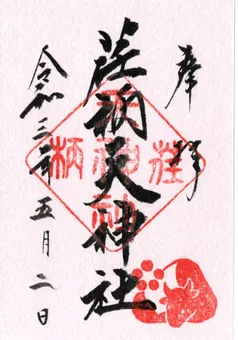 奉拝
荏柄天神社
荏柄天神社
令和三年五月二日